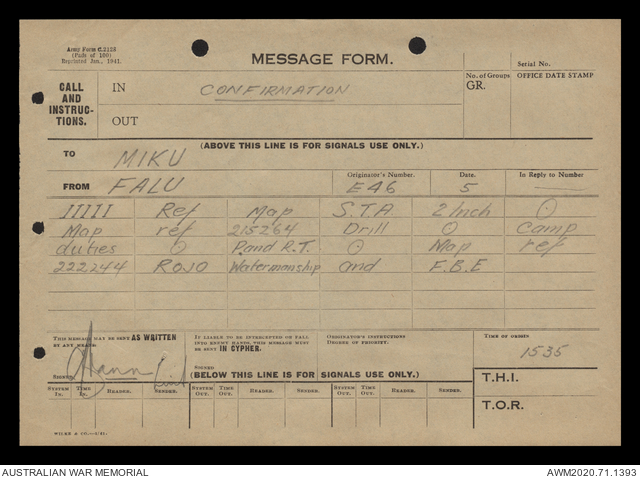 Army Form C.2128
(Pads of 100)
Reprinted Jan., 1941.
MESSAGE FORM.
Serial No.
CALL AND INSTRUCTIONS.
IN
CONFIRMATION
No. of Groups
GR.
OFFICE DATE STAMP
OUT
(ABOVE THIS LINE IS FOR SIGNALS USE ONLY.)
TO MIKU
FROM FALU
Originator's Number.
E46
Date.
5
In Reply to Number
IIIII Ref Map S.T.A 2 Inch ⊙
Map ref 215264 Drill ⊙ Camp
duties ⊙ P and R.T. ⊙ Map ref
222244 ROJO Watermanship and F.B.E
THIS MESSAGE MAY BE SENT AS WRITTEN BY ANY MEANS.
IF LIABLE TO BE INTERCEPTED OR FALL INTO ENEMY HANDS, THIS MESSAGE MUST BE SENT IN CYPHER.
ORIGINATOR'S INSTRUCTIONS
DEGREE OF PRIORITY.
TIME OF ORIGIN
1535
SIGNED
SIGNED
(BELOW THIS LINE IS FOR SIGNALS USE ONLY.)
T.H.I.
SYSTEM IN. TIME IN. READER. SENDER. SYSTEM OUT. TIME OUT. READER. SENDER. SYSTEM OUT. TIME OUT. READER. SENDER.
T.O.R.
WILKE & CO.—
AUSTRALIAN WAR MEMORIAL
AWM2020.71.1393